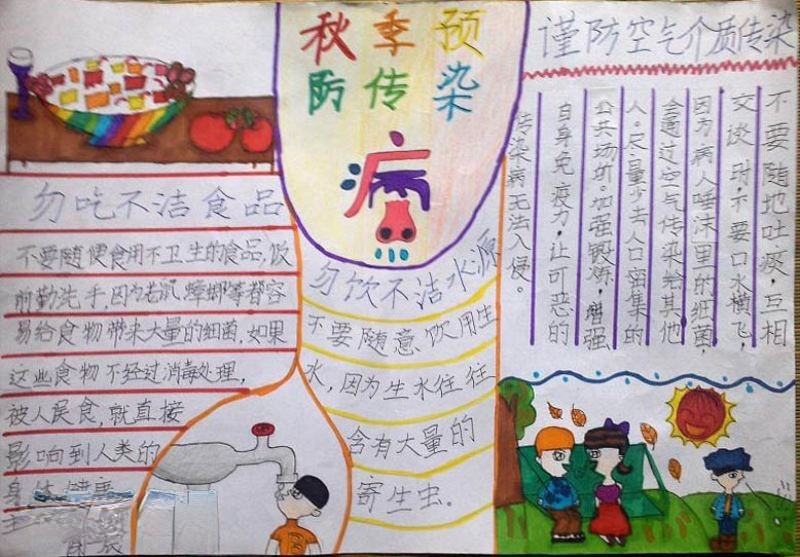 秋季预
防传染
病
勿吃不洁食品
不要随便食用不卫生的食品,饭
前勤洗手,因为老鼠、蟑螂等都容
易给食物带来大量的细菌,如果
这些食物不经过消毒处理,
被人误食,就直接
影响到人类的
身体健康
勿饮不洁水源
不要随意饮用生
水,因为生水往往
含有大量的
寄生虫。
谨防空气介质传染
不要随地吐痰,互相
交谈时,不要口水横飞,
因为病人唾沫里的细菌,
会通过空气传染给其他
人。尽量少去人口密集的
公共场所。加强锻炼,增强
自身免疫力,让可恶的
传染病无法入侵。